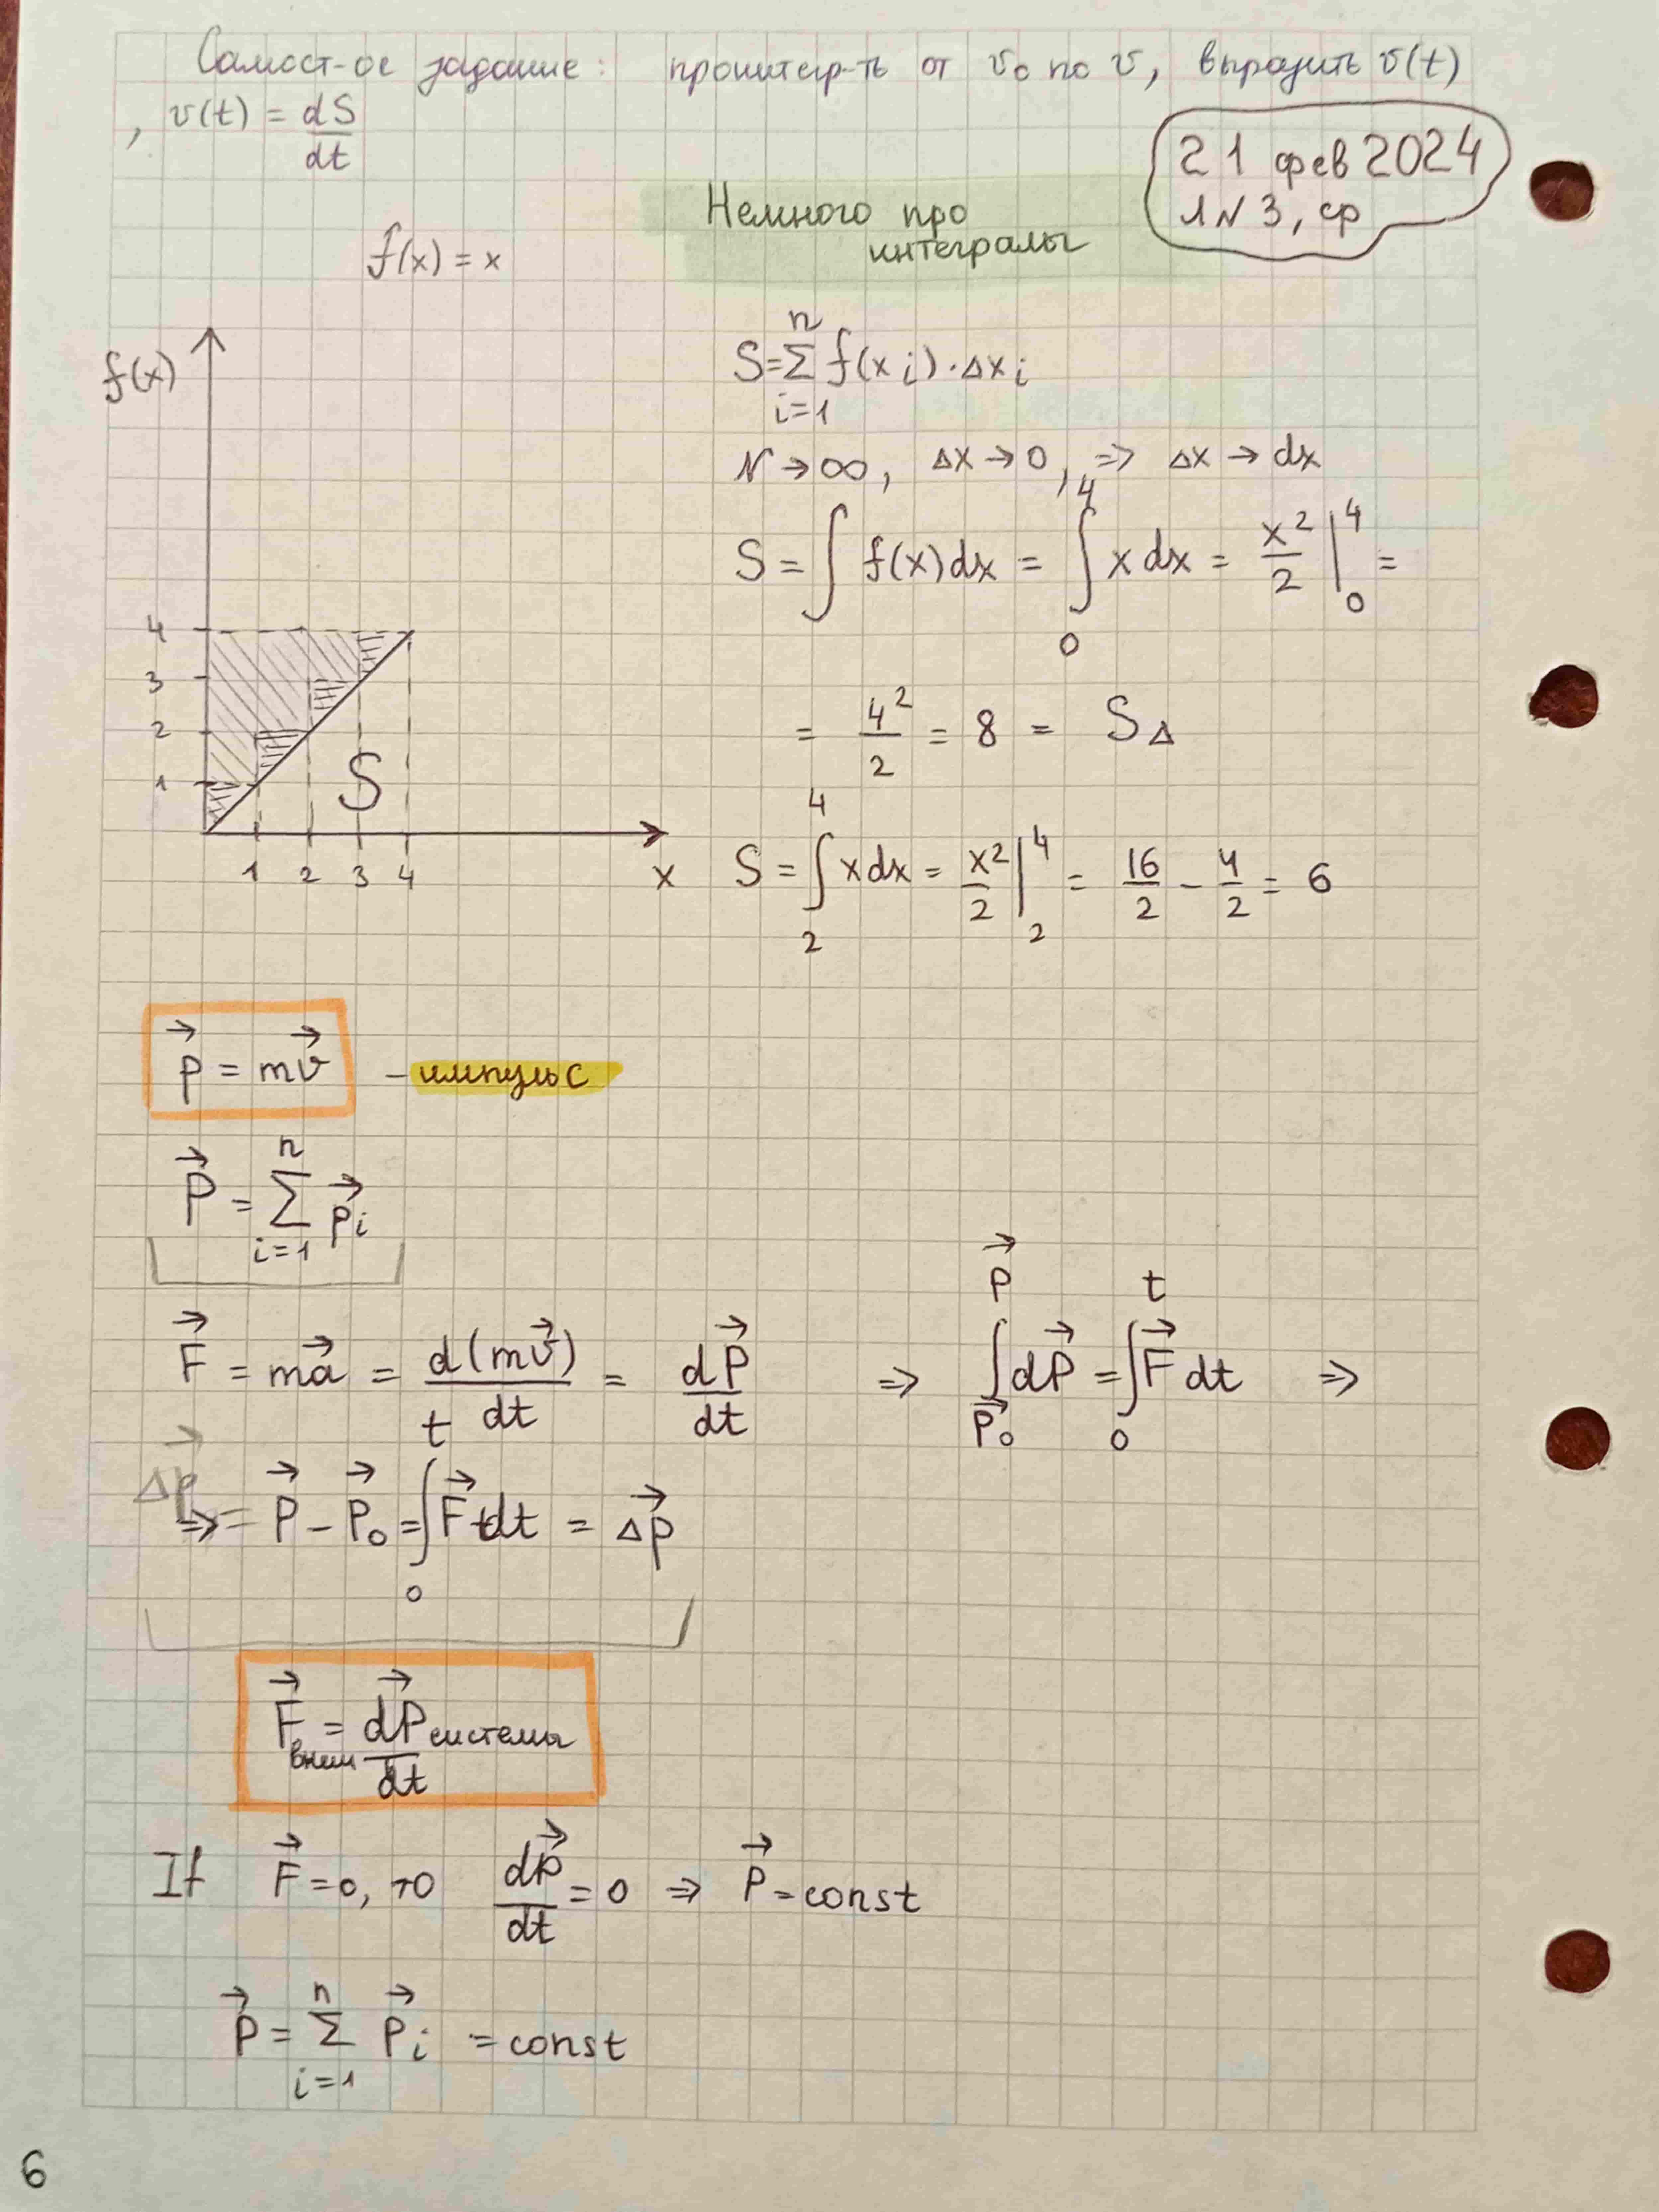 Самост-ое задание: проинтегр-ть от v₀ по v, выразить v(t)
, v(t) = dS/dt
21 фев 2024
лN 3, ср
Немного про
интегралы
f(x) = x
f(x)
4
3
2
1
S
1 2 3 4 x
S = Σ_{i=1}^{n} f(x i) · Δx i
N → ∞, Δx → 0, => Δx → dx
S = ∫ f(x)dx = ∫_0^4 x dx = x²/2 |_0^4 =
= 4²/2 = 8 = S_Δ
S = ∫_2^4 x dx = x²/2 |_2^4 = 16/2 - 4/2 = 6
p⃗ = mv⃗ – импульс
P⃗ = Σ_{i=1}^{n} p⃗i
F⃗ = ma⃗ = d(mv⃗)/dt = dP⃗/dt => ∫_{P⃗₀}^{P⃗} dP⃗ = ∫_0^t F⃗ dt =>
Δp⃗ => = P⃗ - P⃗₀ = ∫_0^t F⃗ dt = Δp⃗
F⃗внеш = dP⃗системы/dt
If F⃗ = 0, то dp⃗/dt = 0 => P⃗ = const
P⃗ = Σ_{i=1}^{n} P⃗i = const
6